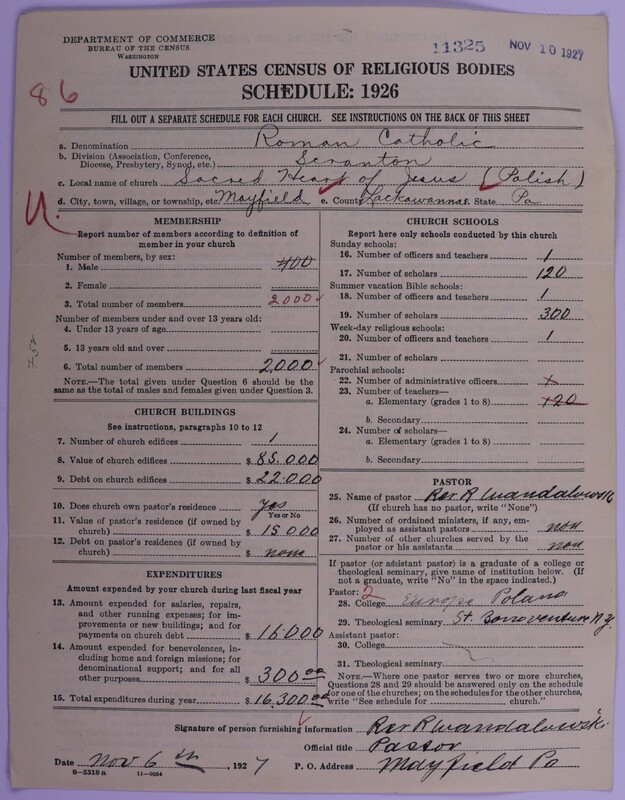 DEPARTMENT OF COMMERCE
BUREAU OF THE CENSUS
WASHINGTON
11325 NOV 10 1927
UNITED STATES CENSUS OF RELIGIOUS BODIES
SCHEDULE: 1926
86
FILL OUT A SEPARATE SCHEDULE FOR EACH CHURCH. SEE INSTRUCTIONS ON THE BACK OF THIS SHEET
a. Denomination Roman Catholic
b. Division (Association, Conference, Diocese, Presbytery, Synod, etc.) Scranton
c. Local name of church Sacred Heart of Jesus (Polish)
d. City, town, village, or township, etc. Mayfield e. County Lackawanna State Pa
MEMBERSHIP
Report number of members according to definition of
member in your church
Number of members, by sex:
1. Male 400
2. Female
3. Total number of members 2000
Number of members under and over 13 years old:
4. Under 13 years of age
5. 13 years old and over
6. Total number of members 2,000
NOTE.—The total given under Question 6 should be
same as the total of males and females given under Question 3.
CHURCH BUILDINGS
See instructions, paragraphs 10 to 12
7. Number of church edifices 1
8. Value of church edifices $ 85.000
9. Debt on church edifices $ 22.000
10. Does church own pastor's residence? yes
Yes or No
11. Value of pastor's residence (if owned by
church) $ 15000
12. Debt on pastor's residence (if owned by
church) $ non
EXPENDITURES
Amount expended by your church during last fiscal year
13. Amount expended for salaries, repairs,
and other running expenses; for im-
provements or new buildings; and for
payments on church debt $ 16.000
14. Amount expended for benevolences,
including home and foreign missions; for
denominational support; and for all
other purposes $ 300 00
15. Total expenditures during year $ 16,300 00
CHURCH SCHOOLS
Report here only schools conducted by this church
Sunday schools:
16. Number of officers and teachers 1
17. Number of scholars 120
Summer vacation Bible schools:
18. Number of officers and teachers 1
19. Number of scholars 300
Week-day religious schools:
20. Number of officers and teachers 1
21. Number of scholars
Parochial schools:
22. Number of administrative officers 1
23. Number of teachers—
a. Elementary (grades 1 to 8) 120
b. Secondary
24. Number of scholars—
a. Elementary (grades 1 to 8)
b. Secondary
PASTOR
25. Name of pastor Rev R Wandalowski
(If church has no pastor, write "None")
26. Number of ordained ministers, if any, em-
ployed as assistant pastors non
27. Number of other churches served by the
pastor or his assistants non
If pastor (or assistant pastor) is a graduate of a college or
theological seminary, give name of institution below. (If
not a graduate, write "No" in the space indicated.)
Pastor: 2
28. College Europe Poland
29. Theological seminary St. Bonaventure N.Y.
Assistant pastor:
30. College
31. Theological seminary
NOTE.—Where one pastor serves two or more churches,
Questions 28 and 29 should be answered only on the schedule
for one of the churches; on the schedules for the other churches,
write "See schedule for church."
Signature of person furnishing information Rev R Wandalowski
Official title Pastor
Date Nov 6 th, 1927 P. O. Address Mayfield Pa
8-3318 a 11-9034